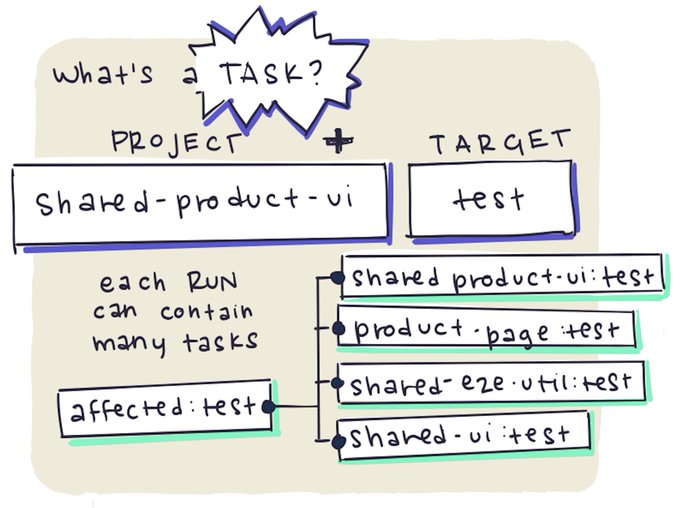 What's a TASK?
PROJECT + TARGET
shared-product-ui test
each RUN
can contain
many tasks
affected:test
shared product-ui:test
product-page:test
shared-e2e-util:test
shared-ui:test